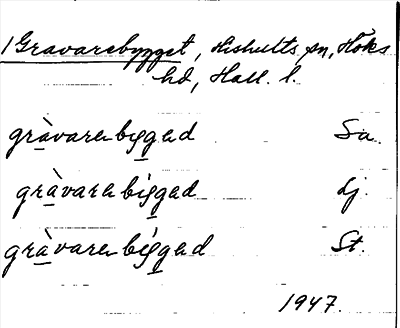 /Gravarebygget, Hishults sn, Höks
hd, Hall. l.
gràvarebỳgged Sa.
gràvarebỳgged Lj.
gràvarebỳgged St.
1947.